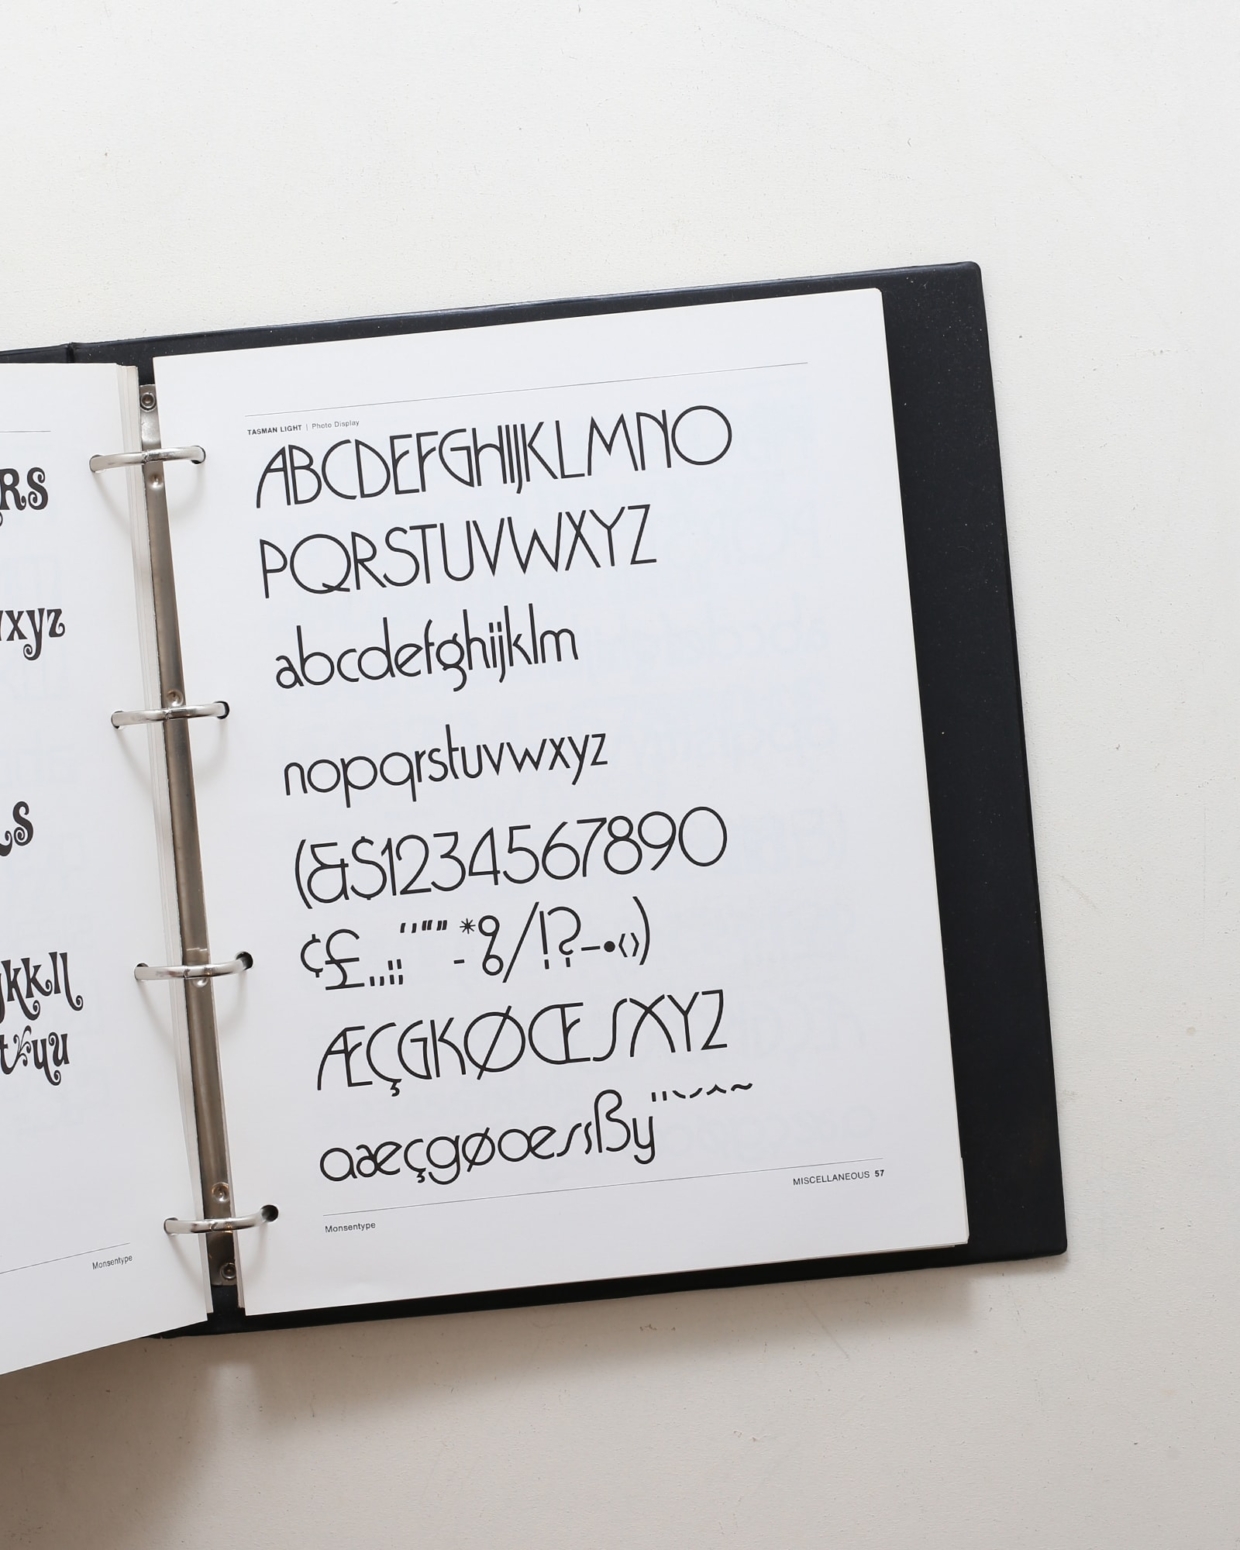 RS
xyz
s
jkkll
TASMAN LIGHT | Photo Display
ABCDEFGHIJKLMNO
PQRSTUVWXYZ
abcdefghijklm
nopqrstuvwxyz
(&$1234567890
¢£.,:;‘’“” *-%/!?–•‹›)
ÆÇGKØŒSXYZ
aæçgøœssßy¨`´ˆ˜
MISCELLANEOUS 57
Monsentype
Monsentype